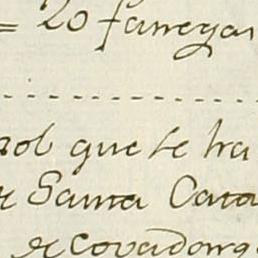 = 20 fanegas
ñol que se ha
de Santa Cata
de Covadong